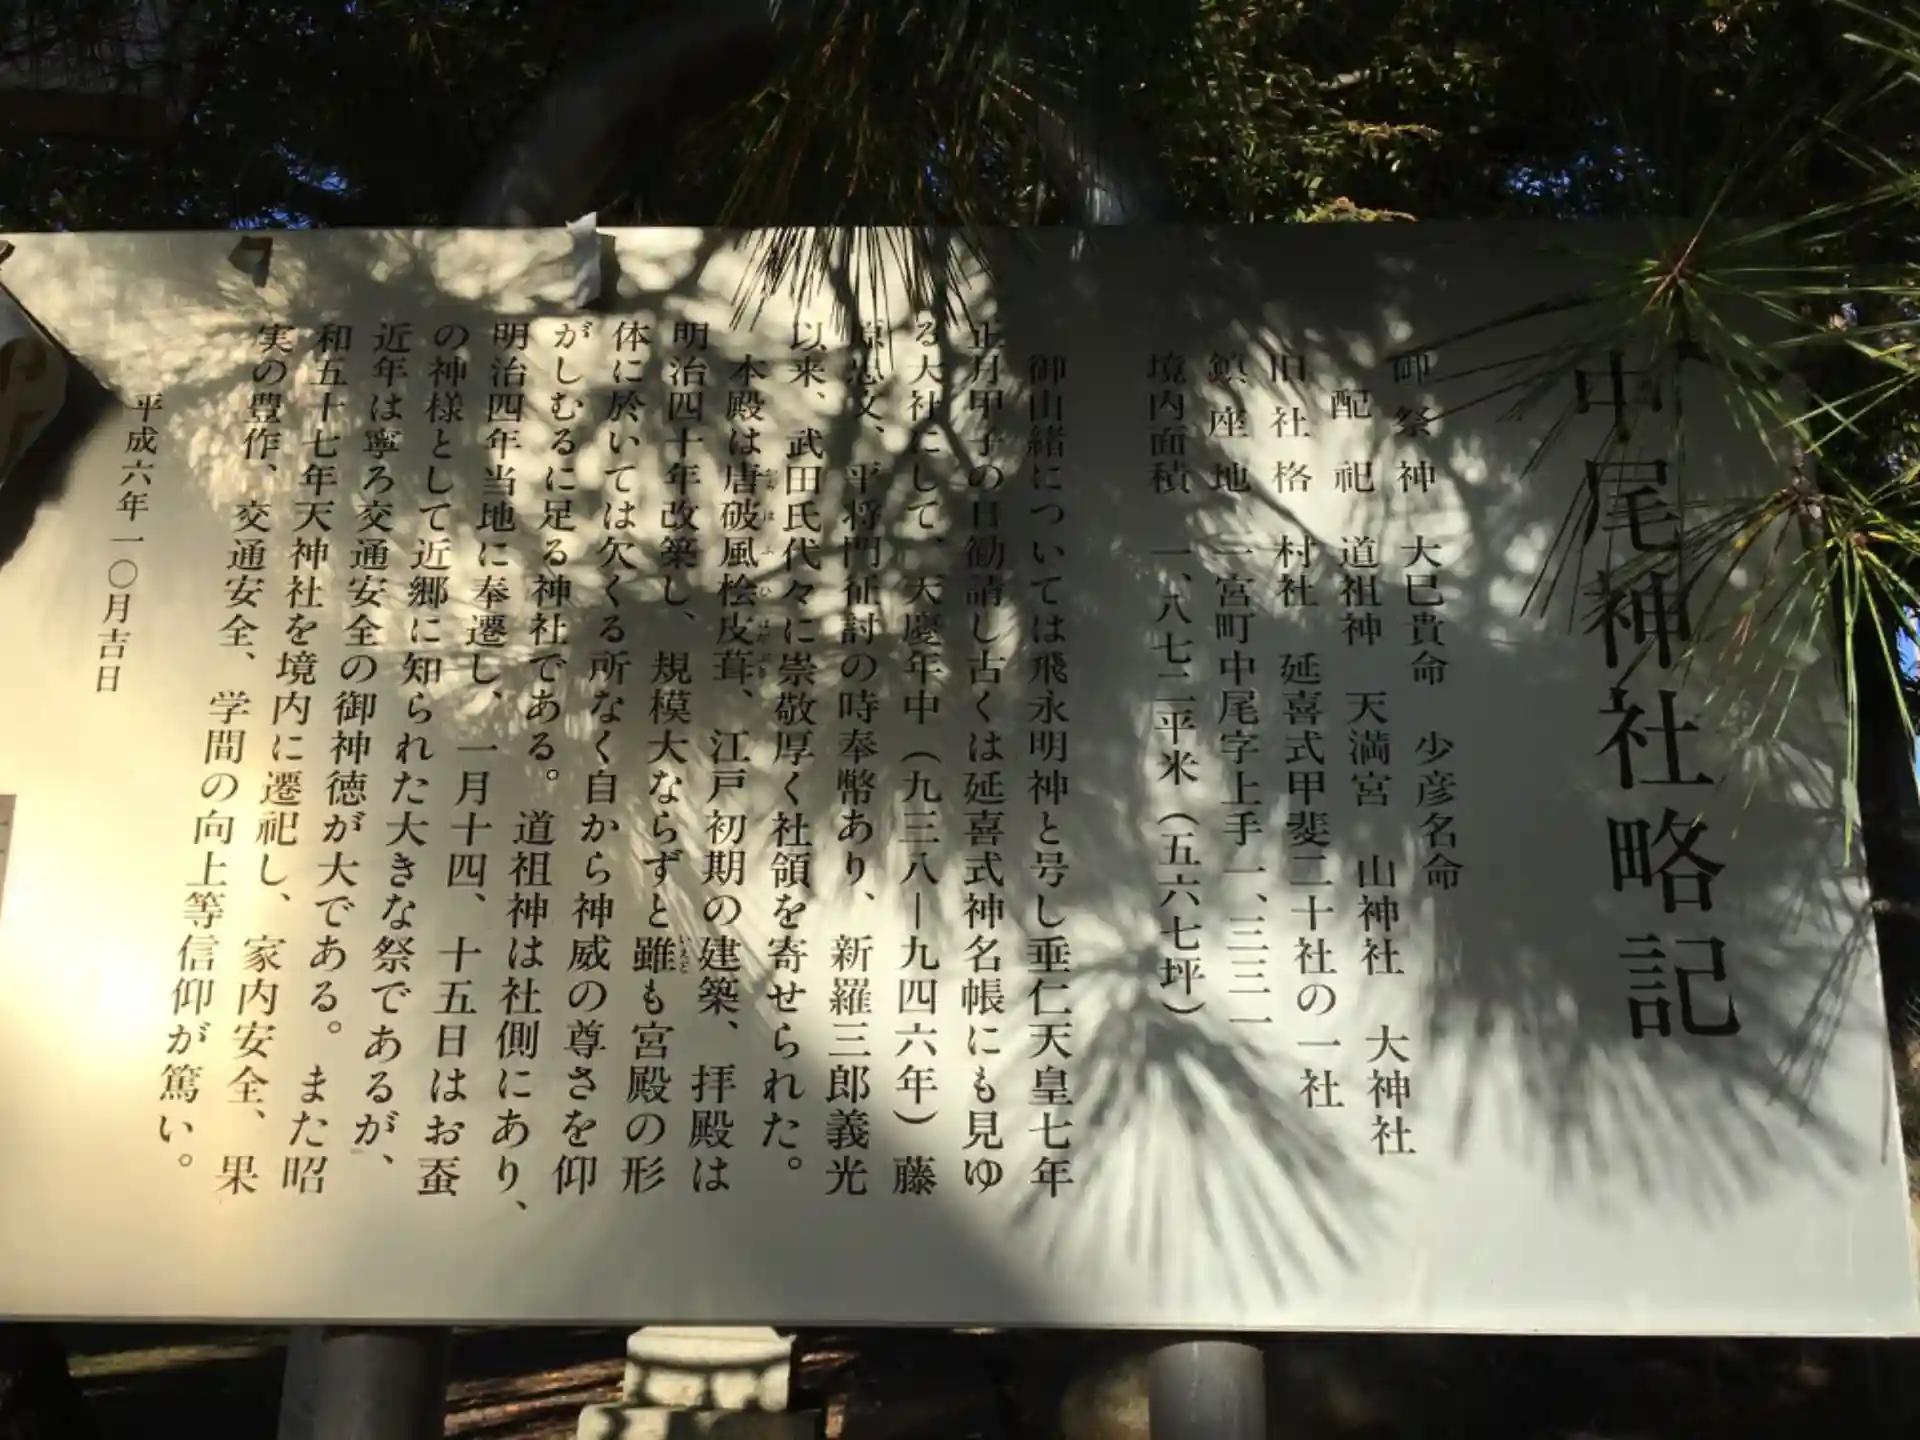 中尾神社略記
御祭神　大巳貴命　少彦名命
配祀　道祖神　天満宮　山神社　大神社
旧社格　村社　延喜式甲斐二十社の一社
鎮座地　一宮町中尾字上手一、三三一
境内面積　一、八七二平米（五六七坪）
御由緒については飛永明神と号し垂仁天皇七年
正月甲子の日勧請し古くは延喜式神名帳にも見ゆ
る大社にして、天慶年中（九三八―九四六年）藤
原忠文、平将門征討の時奉幣あり、新羅三郎義光
以来、武田氏代々に崇敬厚く社領を寄せられた。
本殿は唐破風桧皮葺、江戸初期の建築、拝殿は
明治四十年改築し、規模大ならずと雖も宮殿の形
体に於いては欠くる所なく自から神威の尊さを仰
がしむるに足る神社である。道祖神は社側にあり、
明治四年当地に奉遷し、一月十四、十五日はお蚕
の神様として近郷に知られた大きな祭であるが、
近年は寧ろ交通安全の御神徳が大である。また昭
和五十七年天神社を境内に遷祀し、家内安全、果
実の豊作、交通安全、学間の向上等信仰が篤い。
平成六年一〇月吉日